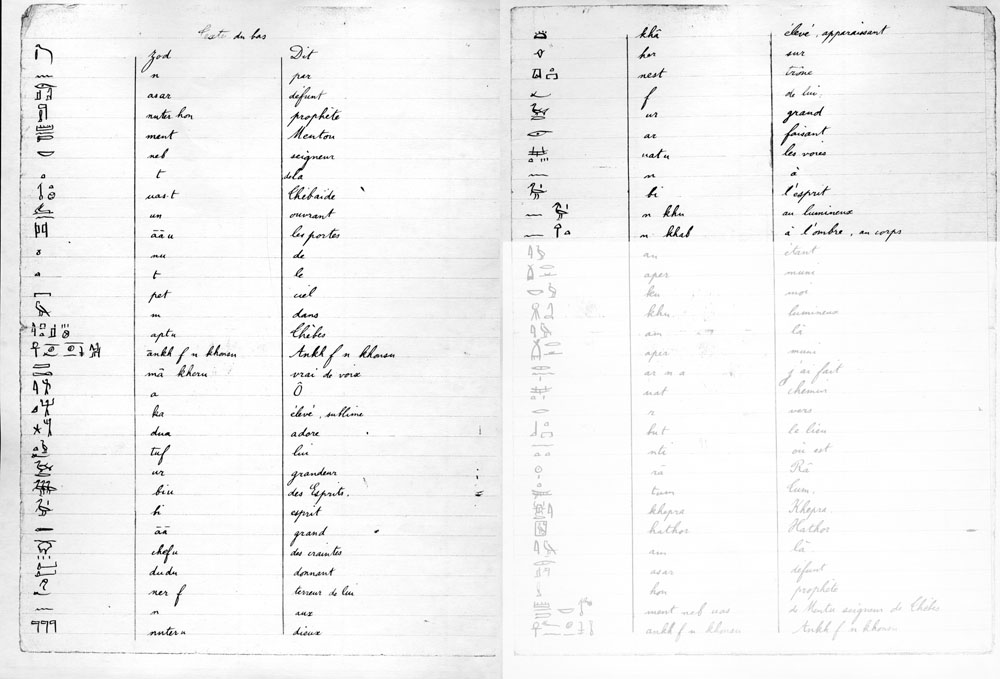 Texte du bas
zod Dit
n par
asar défunt
nuter hon prophète
ment Mentou
neb seigneur
t de la
uas-t Thébaïde
un ouvrant
āāu les portes
nu de
t le
pet ciel
m dans
aptu Thèbes
ānkh f n khonsu Ankh f n khonsu
mā kheru vrai de voix
a Ô
ka élevé, sublime
dua adore
tuf lui
ur grandeur
biu des Esprits.
bi esprit
āā grand
chefu des craintes
dudu donnant
ner f terreur de lui
n aux
nuteru dieux
khā élevé, apparaissant
her sur
nest trône
f de lui.
ur grand
ar faisant
uatu les voies
n à
bi l'esprit
n khu au lumineux
n khab à l'ombre, au corps
au étant
aper muni
ku moi
khu lumineux
am là
aper muni
ar n a j'ai fait
uat chemin
r vers
but le lieu
nti où est
rā Râ
tum Tum.
khepra Khepra
hathor Hathor
am là.
asar défunt
hon prophète
ment neb uas de Mentu seigneur de Thèbes
ankh f n khonsu Ankh f n khonsu